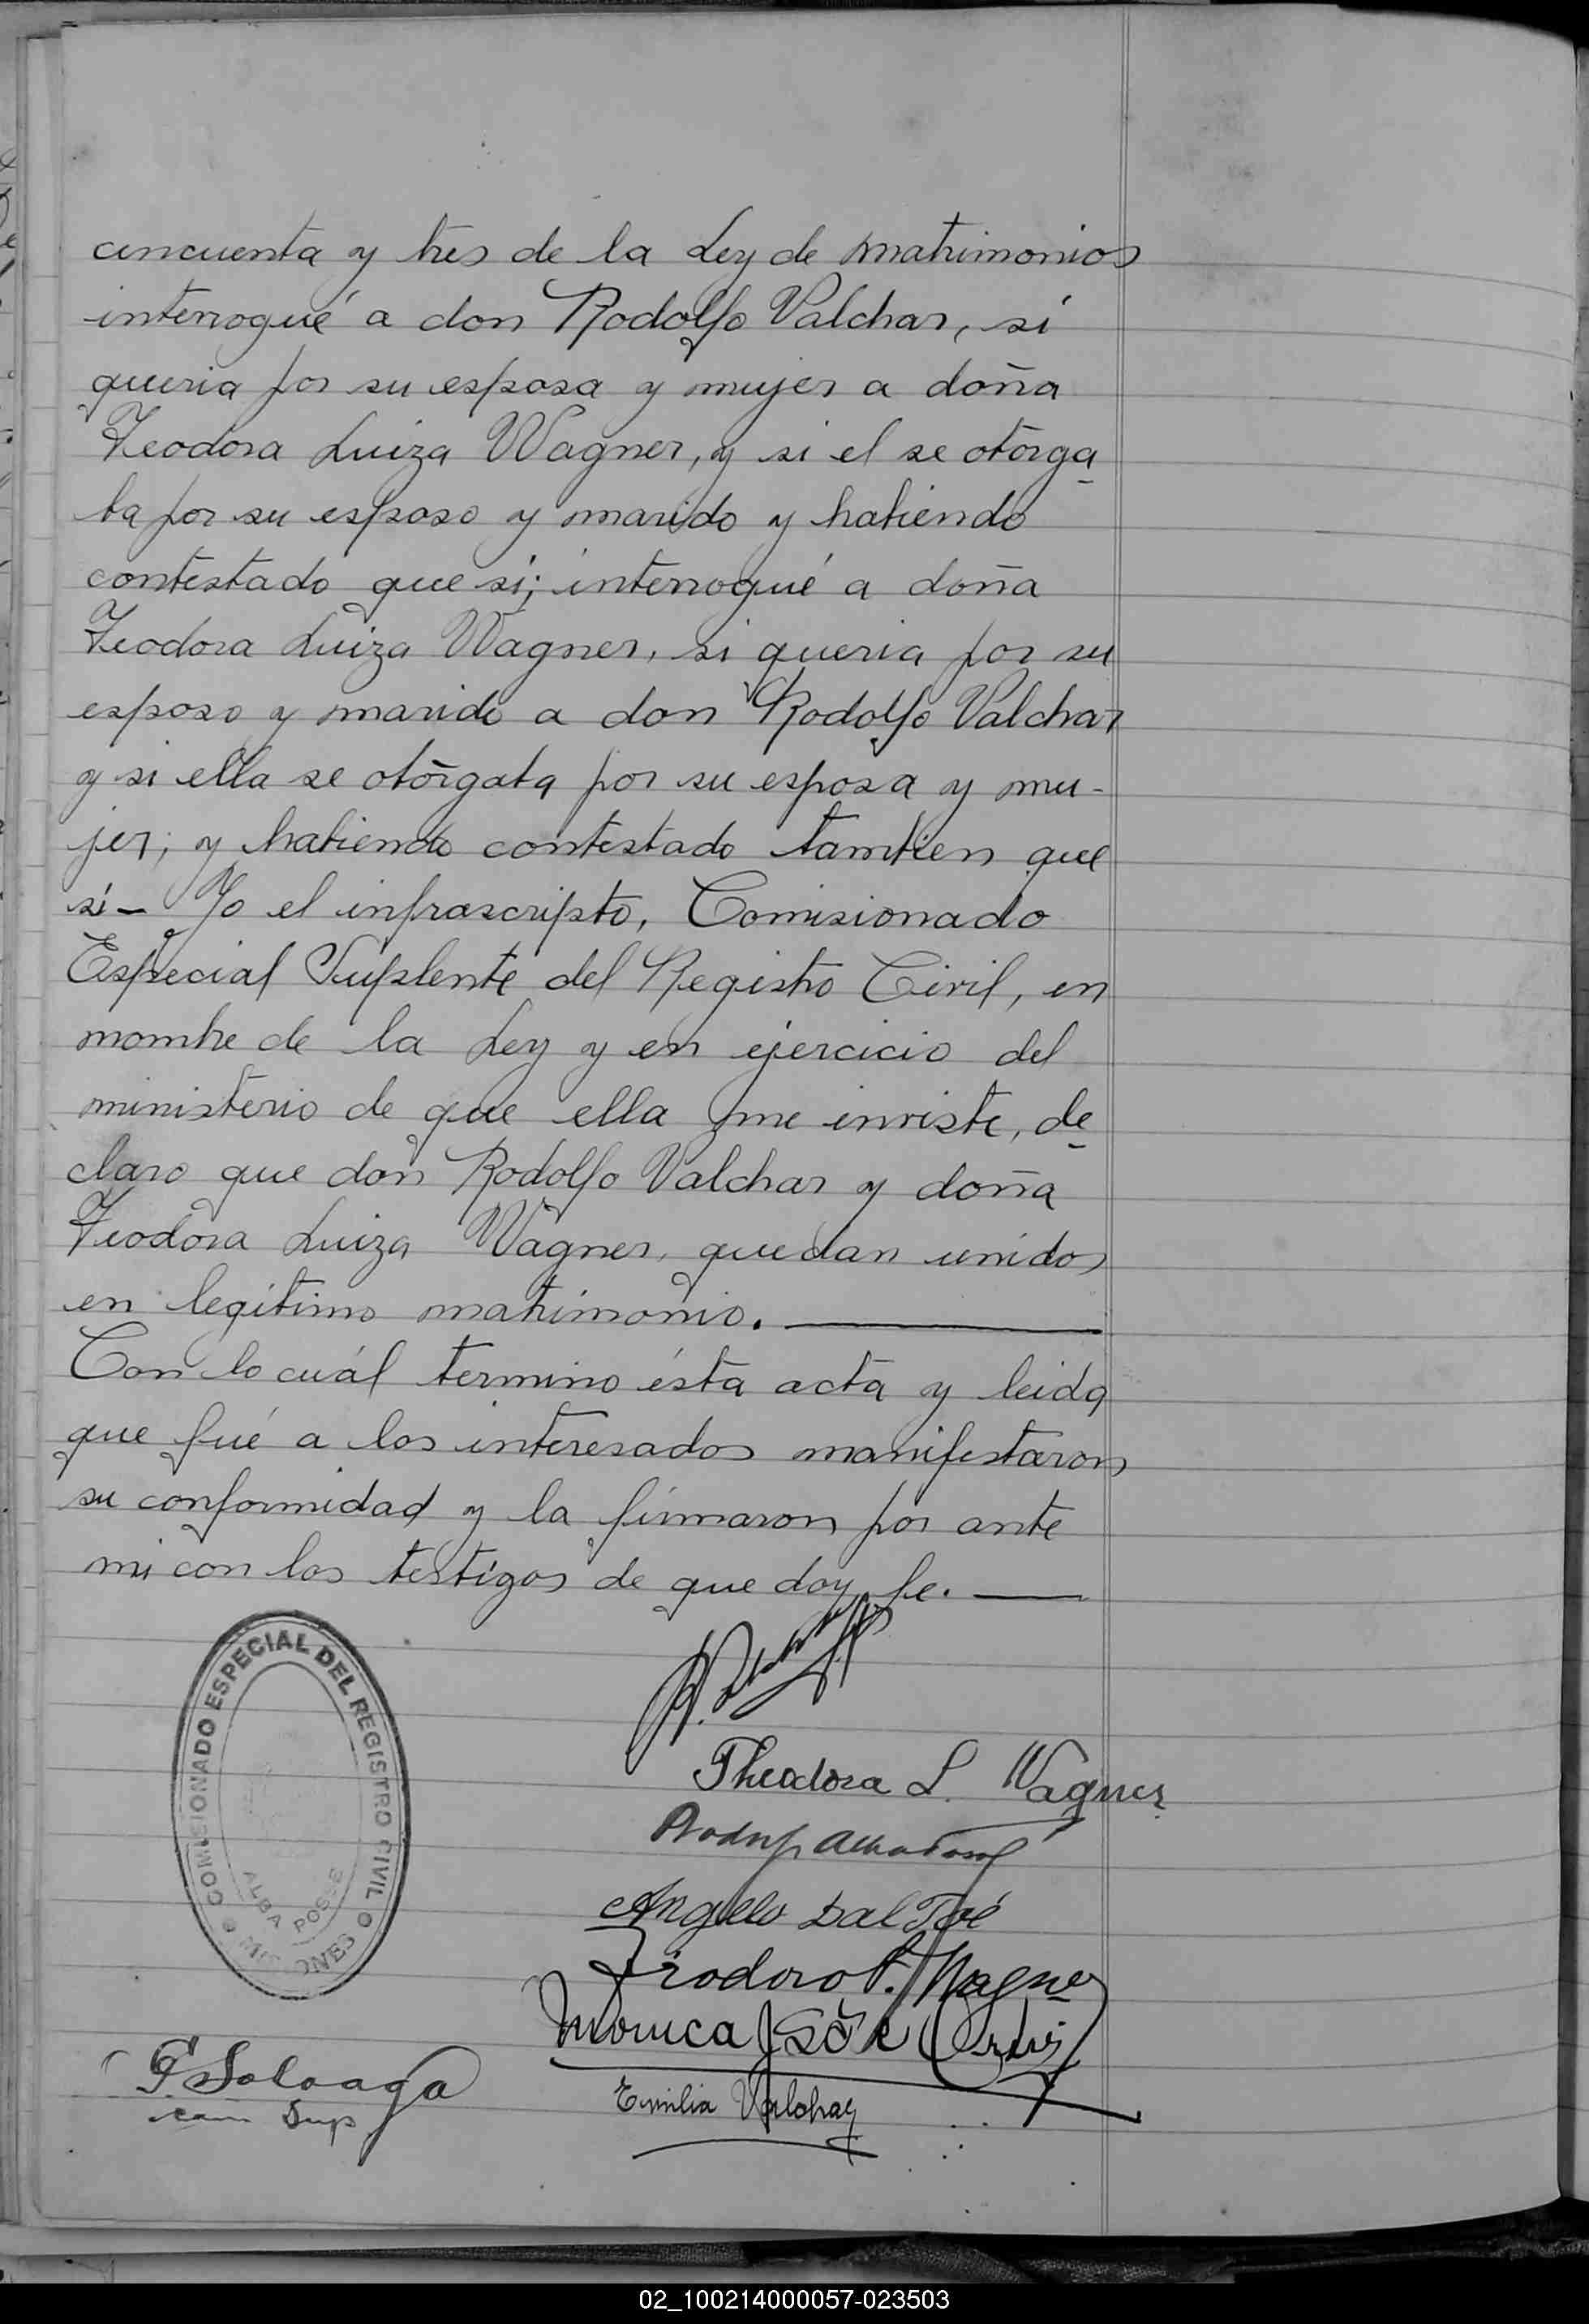 cincuenta y tres de la Ley de Matrimonios
interrogué a don Rodolfo Valchar, si
queria por su esposa y mujer a doña
Teodora Luiza Wagner, y si el se otorga
ba por su esposo y marido y habiendo
contestado que sí; interrogué a doña
Teodora Luiza Wagner, si queria por su
esposo y marido a don Rodolfo Valchar
y si ella se otorgaba por su esposa y mu-
jer; y habiendo contestado tambien que
sí- Yo el infrascripto, Comisionado
Especial Suplente del Registro Civil, en
nombre de la Ley y en ejercicio del
ministerio de que ella me inviste, de
claro que don Rodolfo Valchar y doña
Teodora Luiza Wagner, quedan unidos
en legítimo matrimonio.
Con lo cuál termino ésta acta y leida
que fué a los interesados manifestaron
su conformidad y la firmaron por ante
mi con los testigos de que doy fe.
COMISIONADO ESPECIAL DEL REGISTRO CIVIL
ALBA POSSE
MISIONES
Theodora L. Wagner
Angelo Dal Toé
Teodoro P. Wagner
Monica
Emilia Valchar
G Soloaga
com Sup
02_100214000057-023503